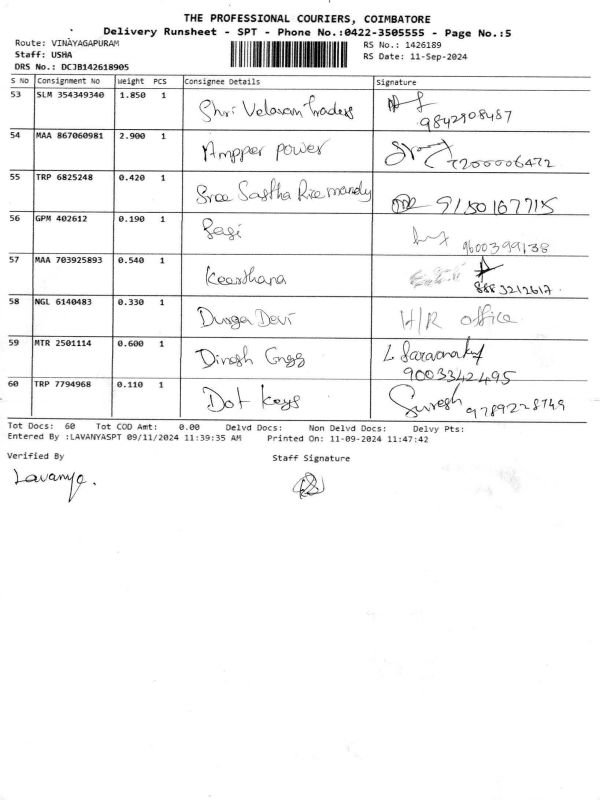 THE PROFESSIONAL COURIERS, COIMBATORE
Delivery Runsheet - SPT - Phone No.:0422-3505555 - Page No.:5
Route: VINAYAGAPURAM
RS No.: 1426189
Staff: USHA
RS Date: 11-Sep-2024
DRS No.: DCJB142618905
S No Consignment No Weight PCS Consignee Details Signature
53 SLM 354349340 1.850 1 Shri Velavan Traders
9842908487
54 MAA 867060981 2.900 1 Ampper power
7200006472
55 TRP 6825248 0.420 1 Sree Sastha Rice mandy 9150167715
56 GPM 402612 0.190 1 Sasi
9600399138
57 MAA 703925893 0.540 1 Keerthana
8883212617
58 NGL 6140483 0.330 1 Durga Devi H/R office
59 MTR 2501114 0.600 1 Dinesh Engg L Saravanakumar
9003342495
60 TRP 7794968 0.110 1 Dot Keys Suresh 9789228749
Tot Docs: 60 Tot COD Amt: 0.00 Delvd Docs: Non Delvd Docs: Delvy Pts:
Entered By :LAVANYASPT 09/11/2024 11:39:35 AM Printed On: 11-09-2024 11:47:42
Verified By Staff Signature
Lavanya.